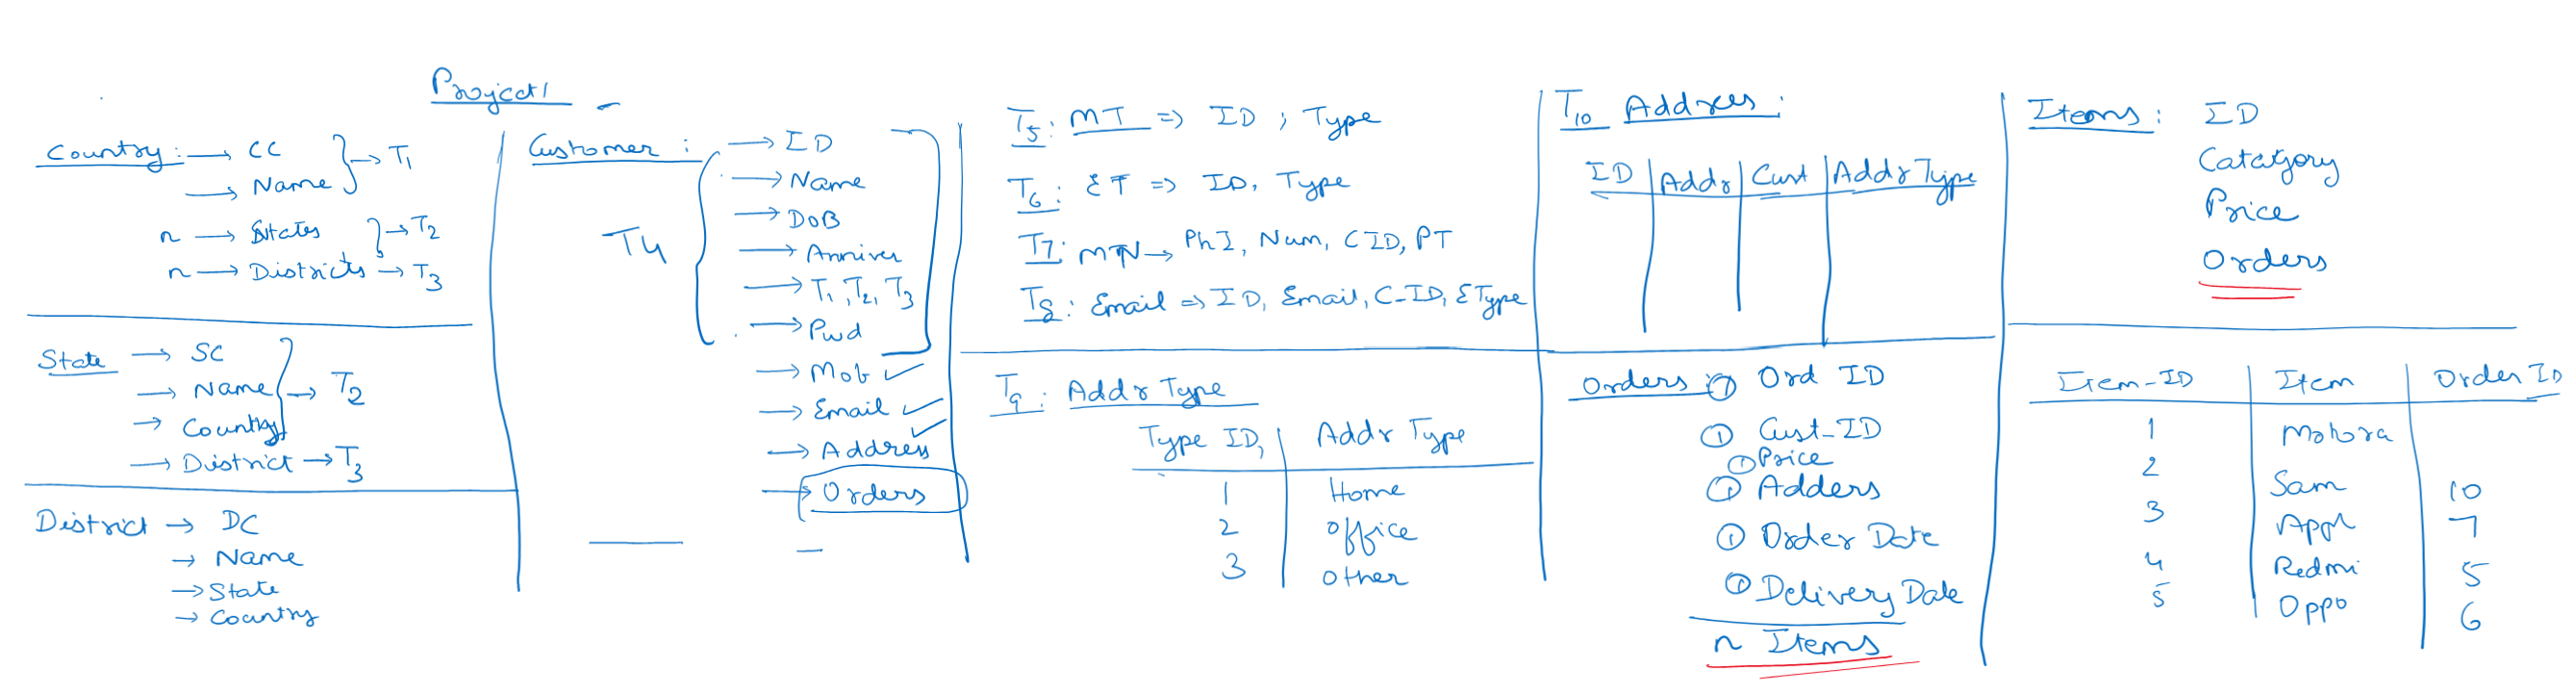 Project1
Country : → CC } → T1
→ Name
n → States } → T2
n → Districts → T3
State → SC
→ Name } → T2
→ Country
→ District → T3
District → DC
→ Name
→ State
→ Country
Customer : → ID
→ Name
→ DoB
T4
→ Anniver
→ T1, T2, T3
→ Pwd
→ Mob ✓
→ Email ✓
→ Address ✓
→ Orders
T5 : MT => ID ; Type
T6 : ET => ID, Type
T7 : MN → PhI, Num, CID, PT
T8 : Email => ID, Email, C-ID, EType
T9 : Addr Type
Type ID, | Addr Type
1 | Home
2 | office
3 | other
T10 Address :
ID | Addr | Cust | Addr Type
Orders : ① Ord ID
① Cust-ID
① Price
① Adders
① Order Date
① Delivery Date
n Items
Items : ID
Catatgory
Price
Orders
Item-ID | Item | Order ID
1 | Motora
2 | Sam | 10
3 | Appl | 7
4 | Redmi | 5
5 | Oppo | 6